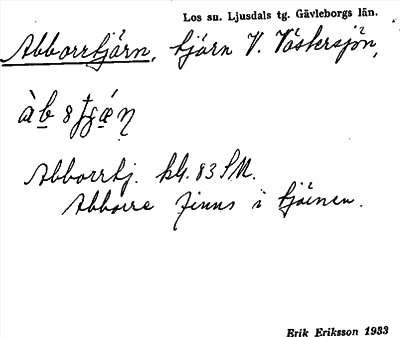 Los sn. Ljusdals tg. Gävleborgs län.
Abborrtjärn, tjärn V. Västersjön,
Abborrtj. kh. 83 SM.
Abborre finns i tjärnen.
Erik Eriksson 1933